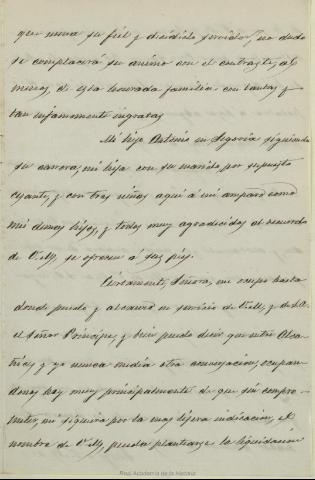 que nunca su fiel y decidido servidor, no dudo
se complacerá su animo con el contraste, al
menos, de esta honrada familia con tantas y
tan infamemente ingratas
Mi hijo Antonio en Segovia siguiendo
su carrera, mi hija con su marido, por supuesto
cesante, y con tres niños aquí á mi amparo como
mis demas hijos, y todos muy agradecidos al recuerdo
de V. M., se ofrecen á sus pies.
Ciertamente, Señora, me ocupo hasta
donde puedo y alcanzo en servicio de V. M., y de S. A.
el Señor Principe, y bien puedo decir que entre
y yo nunca media otra conversacion, ocupan
donos hoy muy principalmente de que sin compro-
meter, ni siquiera por la mas lijera indicacion, el
nombre de V. M., pueda plantearse la liquidacion
Real Academia de la Historia